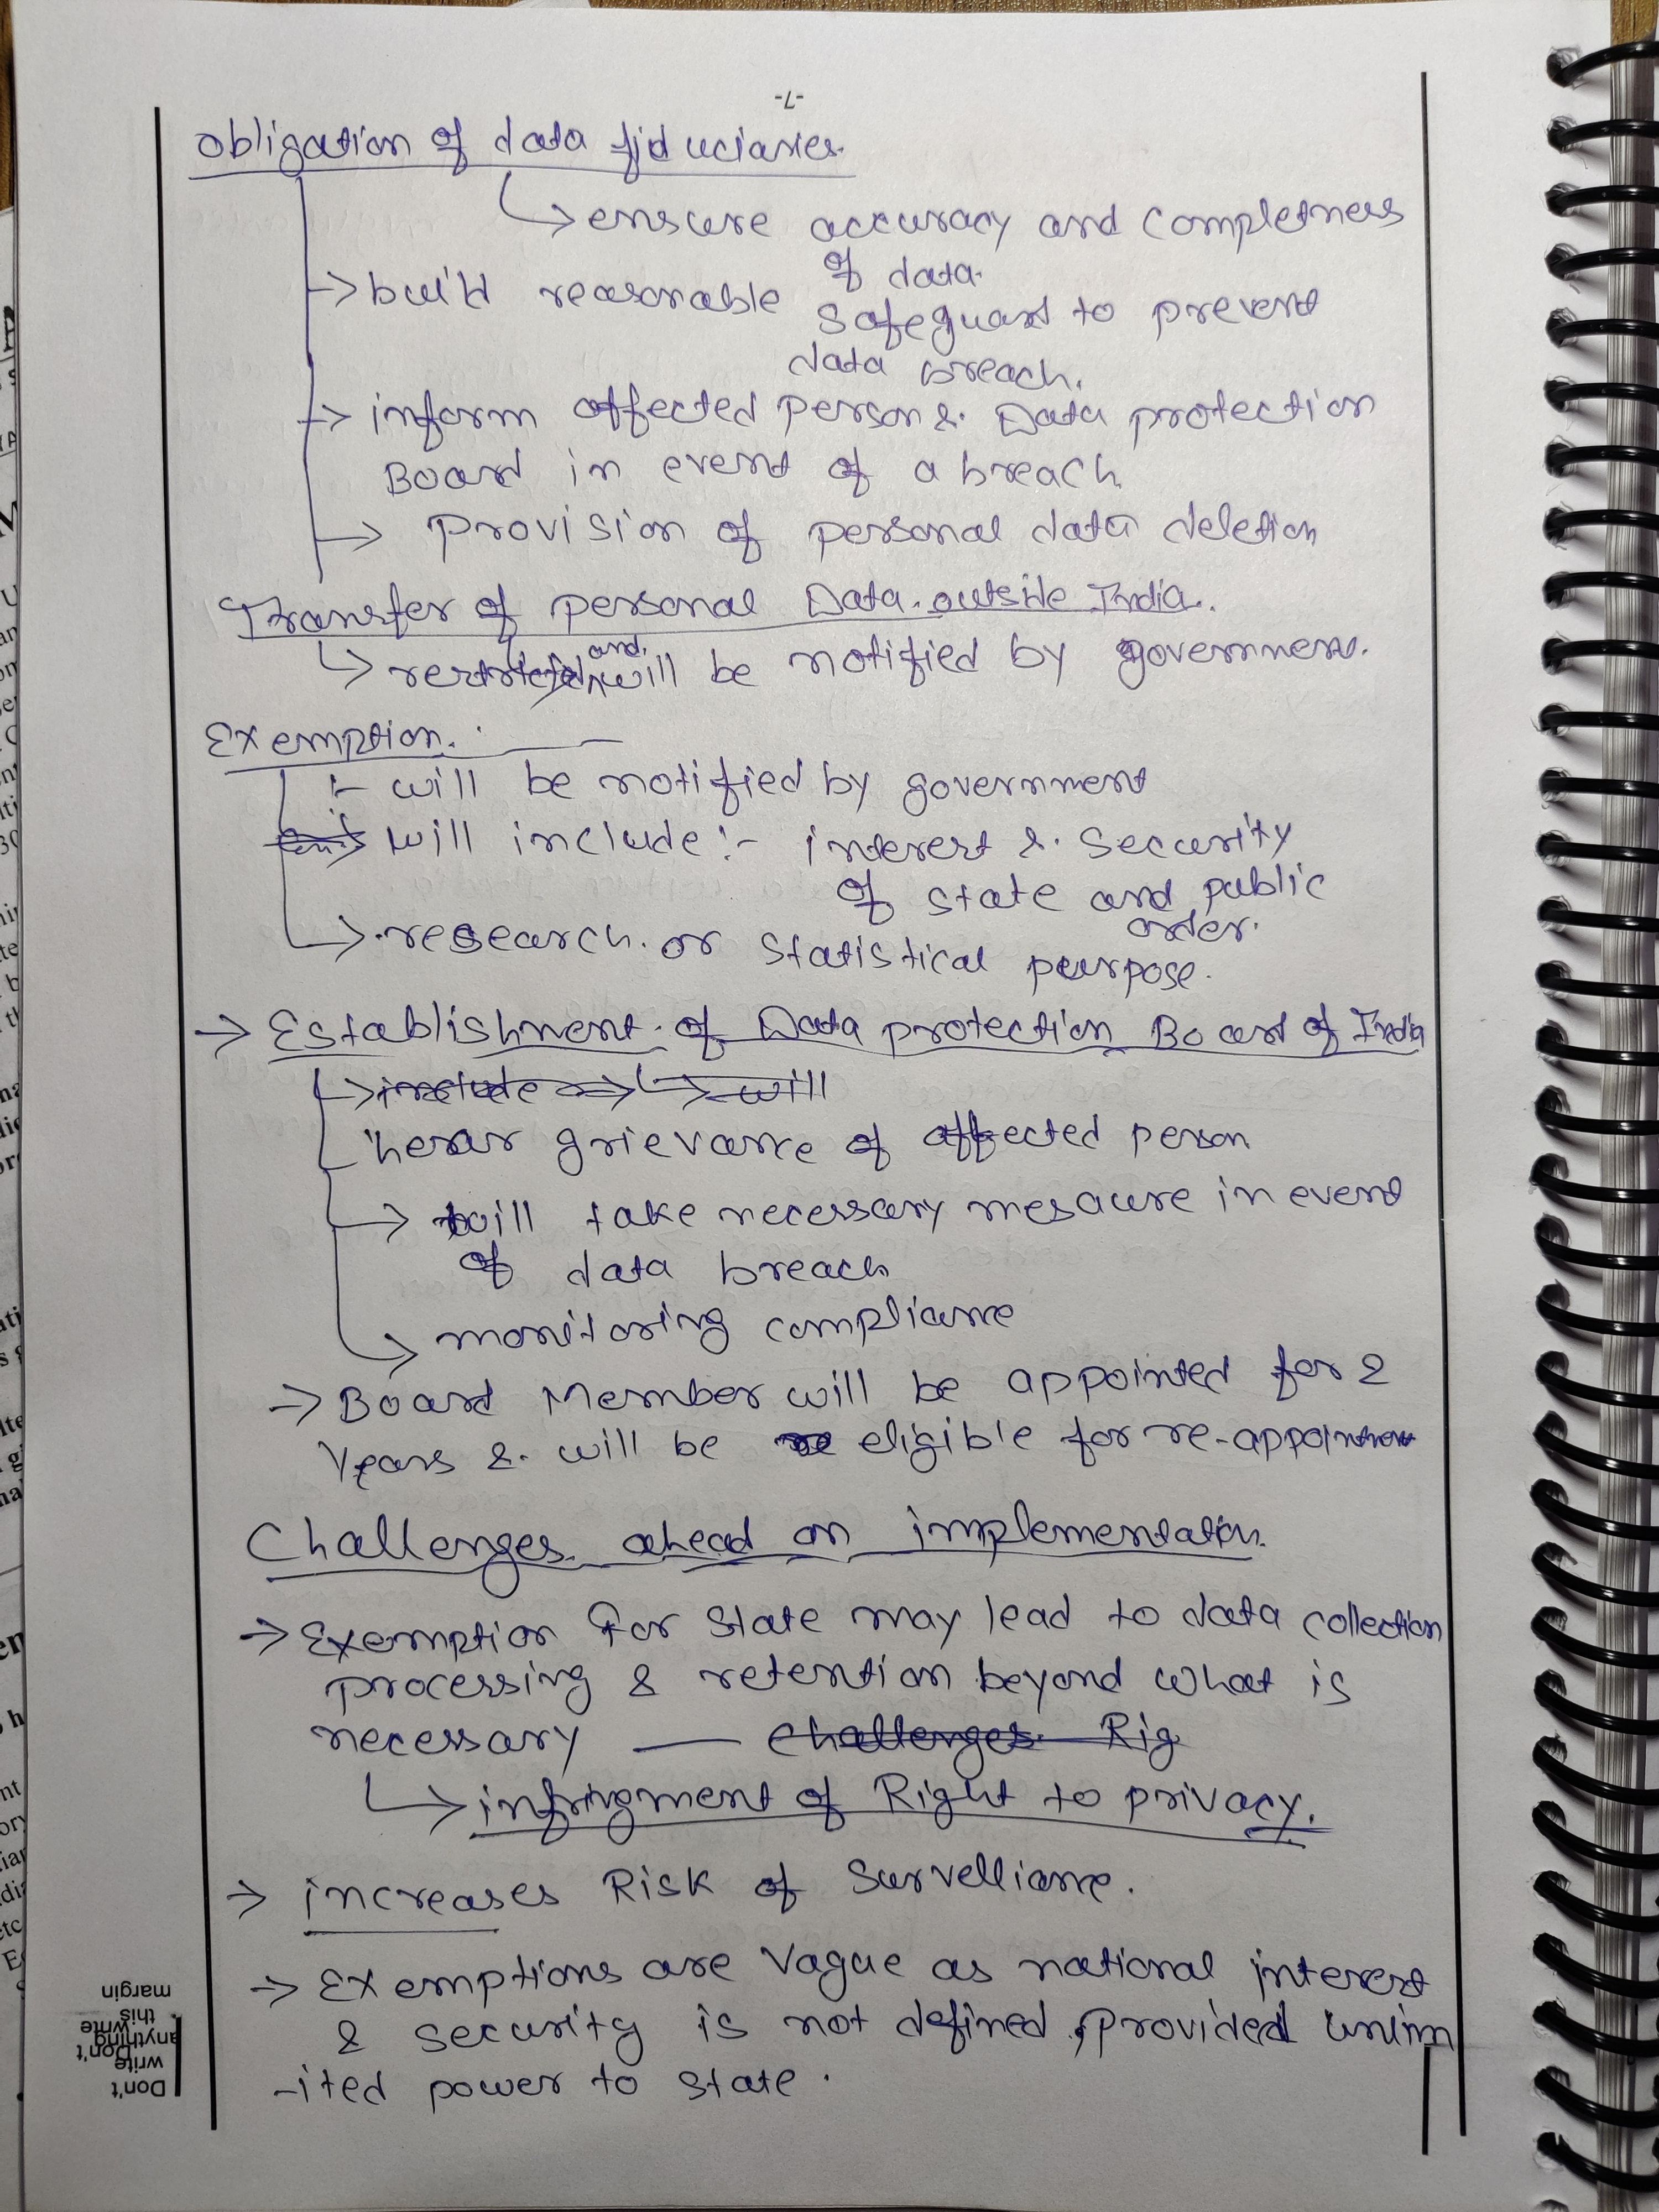 -7-
Obligation of data fiduciaries.
↳ ensure accuracy and completness
of data.
→ build reasonable safeguard to prevent
data breach.
→ inform affected person &. Data protection
Board in event of a breach.
→ provision of personal data deletion
Transfer of personal Data. outside India.
↳ and will be notified by government.
Exemption.
:- will be notified by government
→ will include :- interest &. Security
of state and public
order.
↳ research. or statistical purpose.
→ Establishment. of Data protection Board of India
→ include → ↳ will
hear grievance of affected person
→ will take necessary mesaure in event
of data breach
→ monitoring compliance
→ Board Member will be appointed for 2
Years &. will be eligible for re-appointment
Challenges. ahead on implementation.
→ Exemption for state may lead to data collection
processing & retention beyond what is
necessary — Challenges. Rig
↳ infringment of Right to privacy.
→ increases Risk of Survelliance.
→ Exemptions are Vague as national interest
& security is not defined, provided unlim
-ited power to state.
Don't
write
anything
this
margin